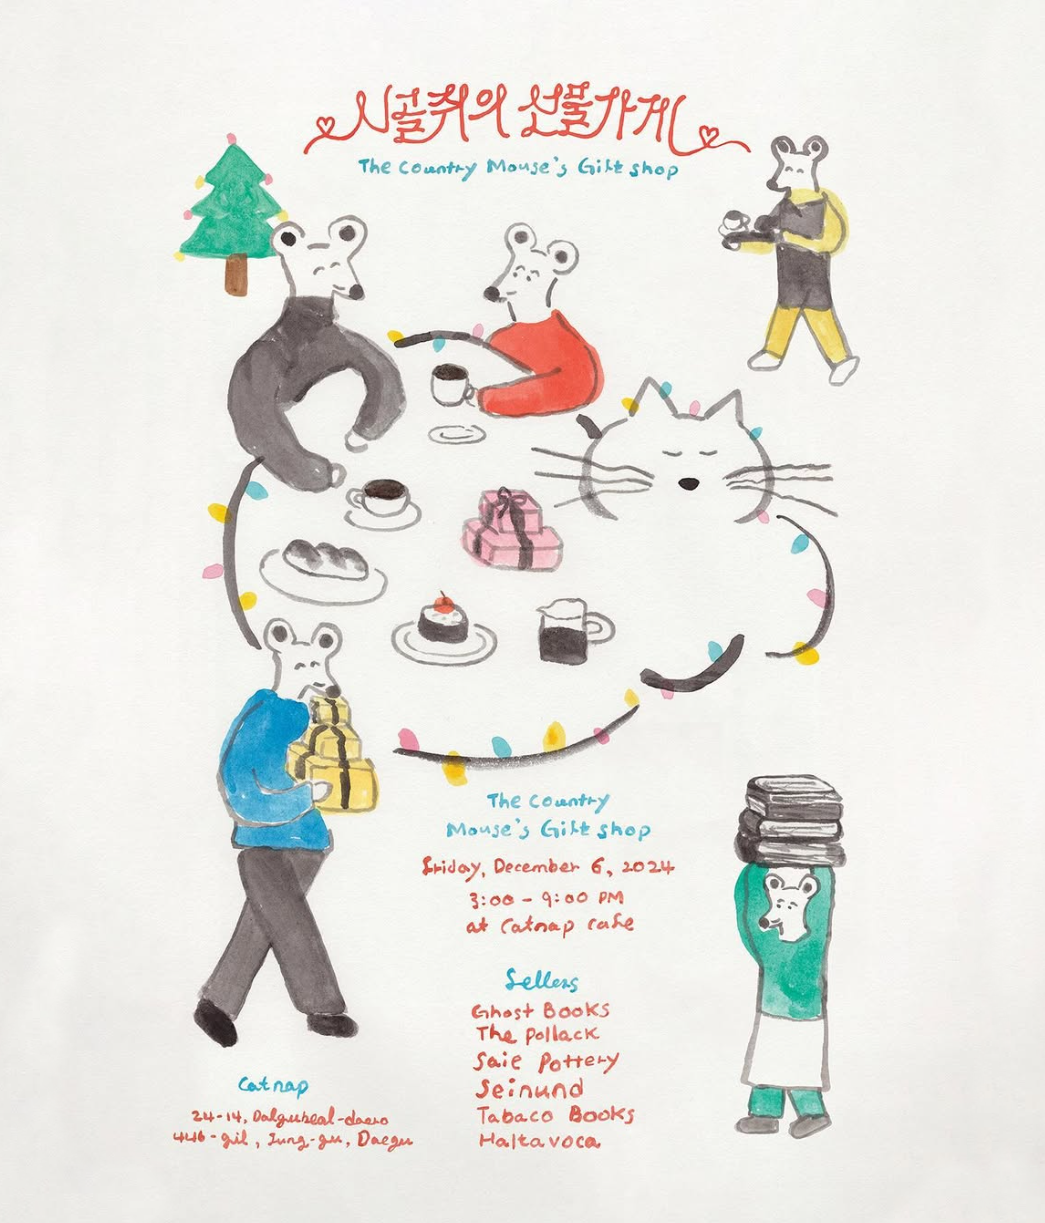 시골쥐의 선물가게
The Country Mouse's Gift shop
The Country
Mouse's Gift shop
Friday, December 6, 2024
3:00 - 9:00 PM
at Catnap cafe
Sellers
Ghost Books
The Pollack
Saie Pottery
Seinund
Tabaco Books
Haltavoca
Catnap
24-14, Dalgubeal-daero
446-gil, Jung-gu, Daegu